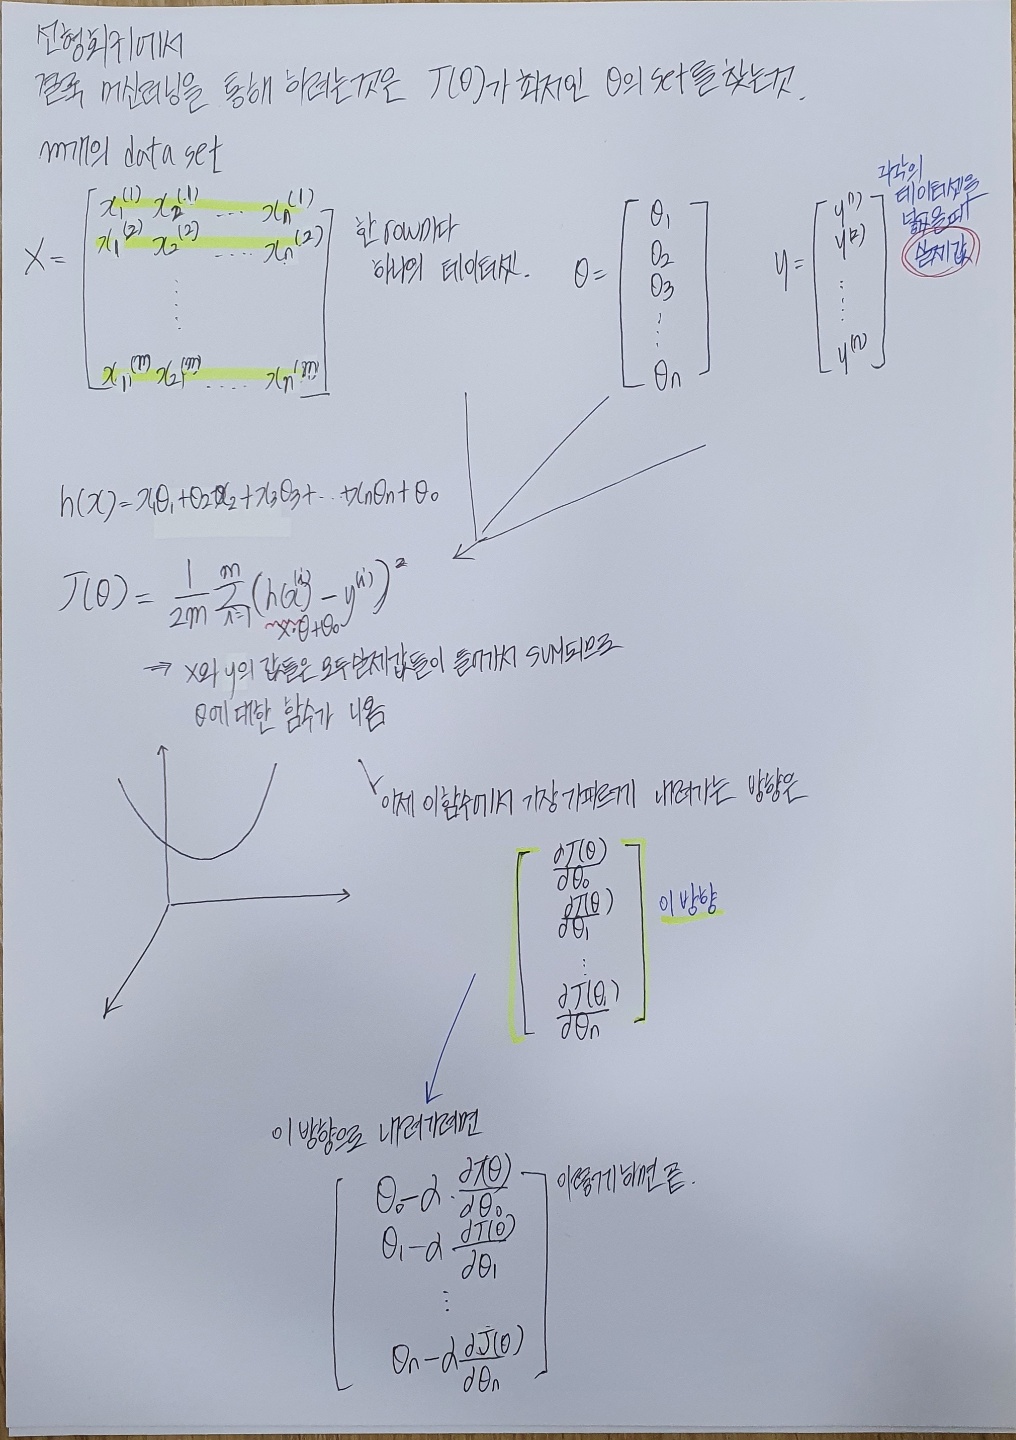 선형회귀에서
결국 머신러닝을 통해 하려는것은 J(θ)가 최저인 θ의 set를 찾는것.
m개의 data set
X = [ x₁⁽¹⁾ x₂⁽¹⁾ .... xₙ⁽¹⁾
x₁⁽²⁾ x₂⁽²⁾ ..... xₙ⁽²⁾
.....
x₁⁽ᵐ⁾ x₂⁽ᵐ⁾ .... xₙ⁽ᵐ⁾ ]
한 row마다
하나의 데이터셋.
θ = [ θ₁
θ₂
θ₃
⋮
θₙ ]
y = [ y⁽¹⁾
y⁽²⁾
.....
y⁽ⁿ⁾ ]
각각의
데이터셋을
넣었을때
실제값
h(x) = x₁θ₁+θ₂x₂+x₃θ₃+...+xₙθₙ+θ₀
J(θ) = 1/2m Σᵢ₌₁ᵐ (h(x⁽ⁱ⁾) − y⁽ⁱ⁾)²
x·θ+θ₀
⇒ x와 y의 값들은 모두 실제값들이 들어가서 sum되므로
θ에 대한 함수가 나옴
이제 이함수에서 가장 가파르게 내려가는 방향은
[ ∂J(θ)/∂θ₀
∂J(θ)/∂θ₁
⋮
∂J(θ)/∂θₙ ]
이 방향
이 방향으로 내려가려면
[ θ₀ − α · ∂J(θ)/∂θ₀
θ₁ − α ∂J(θ)/∂θ₁
⋮
θₙ − α ∂J(θ)/∂θₙ ]
이렇게하면 끝.